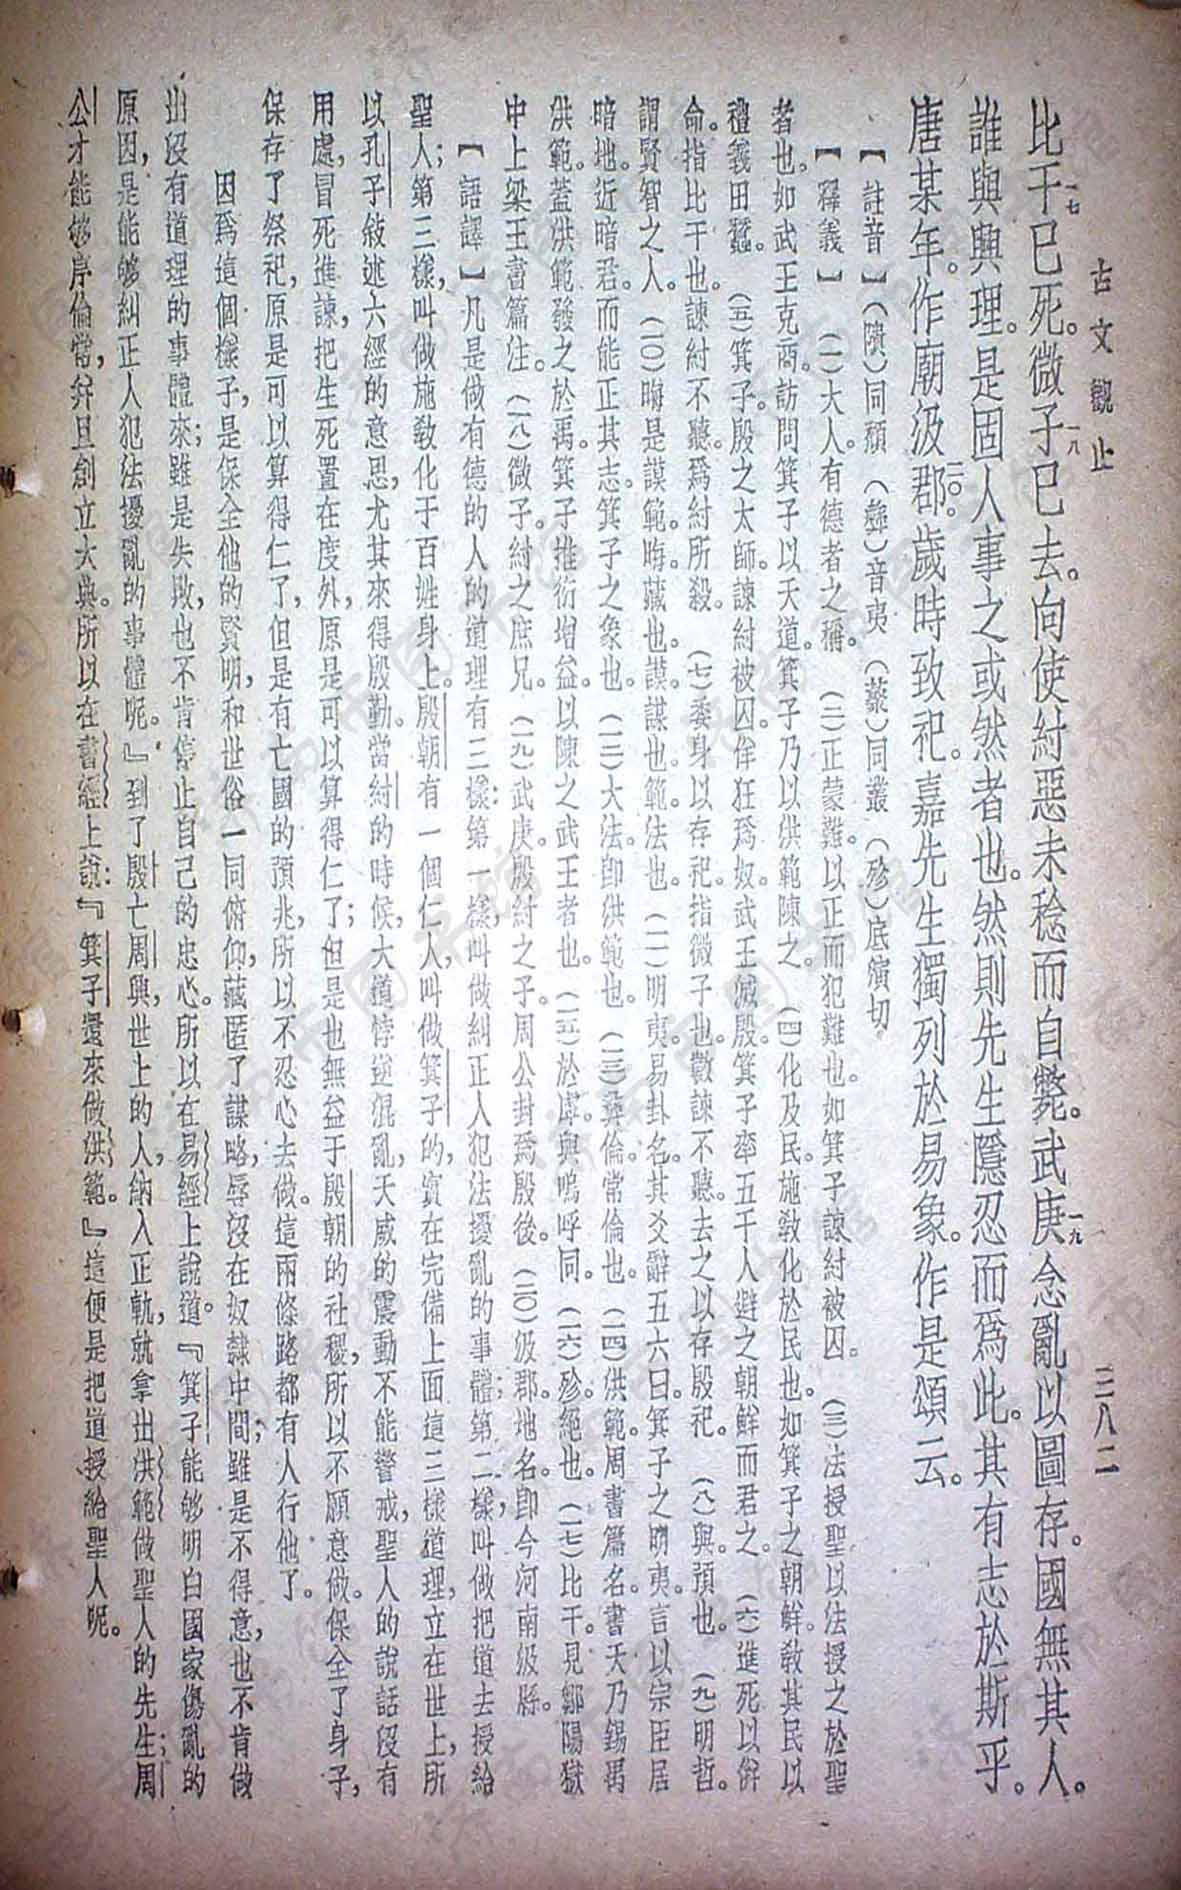 古文觀止
二八二
比干一七已死。微子一八已去。向使紂惡未稔而自斃。武庚一九念亂以圖存。國無其人。
誰與興理。是固人事之或然者也。然則先生隱忍而爲此。其有志於斯乎。
唐某年。作廟汲郡二〇。歲時致祀。嘉先生獨列於易象。作是頌云。
【註音】（隤）同頹 （彝）音夷 （藂）同叢 （殄）底演切
【釋義】 （一）大人。有德者之稱。 （二）正蒙難。以正而犯難也。如箕子諫紂被囚。 （三）法授聖以法授之於聖
者也。如武王克商。訪問箕子以天道。箕子乃以洪範陳之。 （四）化及民。施敎化於民也。如箕子之朝鮮。敎其民以
禮義田蠶。 （五）箕子。殷之太師。諫紂被囚。佯狂爲奴。武王滅殷。箕子率五千人避之朝鮮而君之。 （六）進死以併
命。指比干也。諫紂不聽。爲紂所殺。 （七）委身以存祀。指微子也。數諫不聽。去之以存殷祀。 （八）與。預也。 （九）明哲。
謂賢智之人。 （一〇）晦是謨範。晦。藏也。謨。謀也。範。法也。 （一一）明夷。易卦名。其爻辭五六曰。箕子之明夷。言以宗臣居
暗地。近暗君。而能正其志。箕子之象也。 （一二）大法。卽洪範也。 （一三）彝倫。常倫也。 （一四）洪範。周書篇名。書天乃錫禹
洪範。蓋洪範發之於禹。箕子推衍增益。以陳之武王者也。 （一五）於虖。與嗚呼同。 （一六）殄。絕也。 （一七）比干。見鄒陽獄
中上梁王書篇注。 （一八）微子。紂之庶兄。 （一九）武庚。殷紂之子。周公封爲殷後。 （二〇）汲郡。地名。卽今河南汲縣。
【語譯】凡是做有德的人的道理有三樣：第一樣，叫做糾正人犯法擾亂的事體；第二樣，叫做把道去授給
聖人；第三樣，叫做施敎化于百姓身上。殷朝有一個仁人，叫做箕子的，實在完備上面這三樣道理，立在世上，所
以孔子敍述六經的意思，尤其來得殷勤。當紂的時候，大道悖逆混亂，天威的震動不能警戒，聖人的說話沒有
用處，冒死進諫，把生死置在度外，原是可以算得仁了；但是也無益于殷朝的社稷，所以不願意做。保全了身子，
保存了祭祀，原是可以算得仁了，但是有亡國的預兆，所以不忍心去做。這兩條路都有人行他了。
因爲這個樣子，是保全他的賢明，和世俗一同俯仰，藏匿了謀略，辱沒在奴隸中間；雖是不得意，也不肯做
出沒有道理的事體來；雖是失敗，也不肯停止自己的忠心。所以在易經上說道。『箕子能够明白國家傷亂的
原因，是能够糾正人犯法擾亂的事體呢。』到了殷亡周興，世上的人，納入正軌，就拿出洪範做聖人的先生；周
公才能够序倫常，并且創立大典。所以在書經上說：『箕子還來做洪範。』這便是把道授給聖人呢。